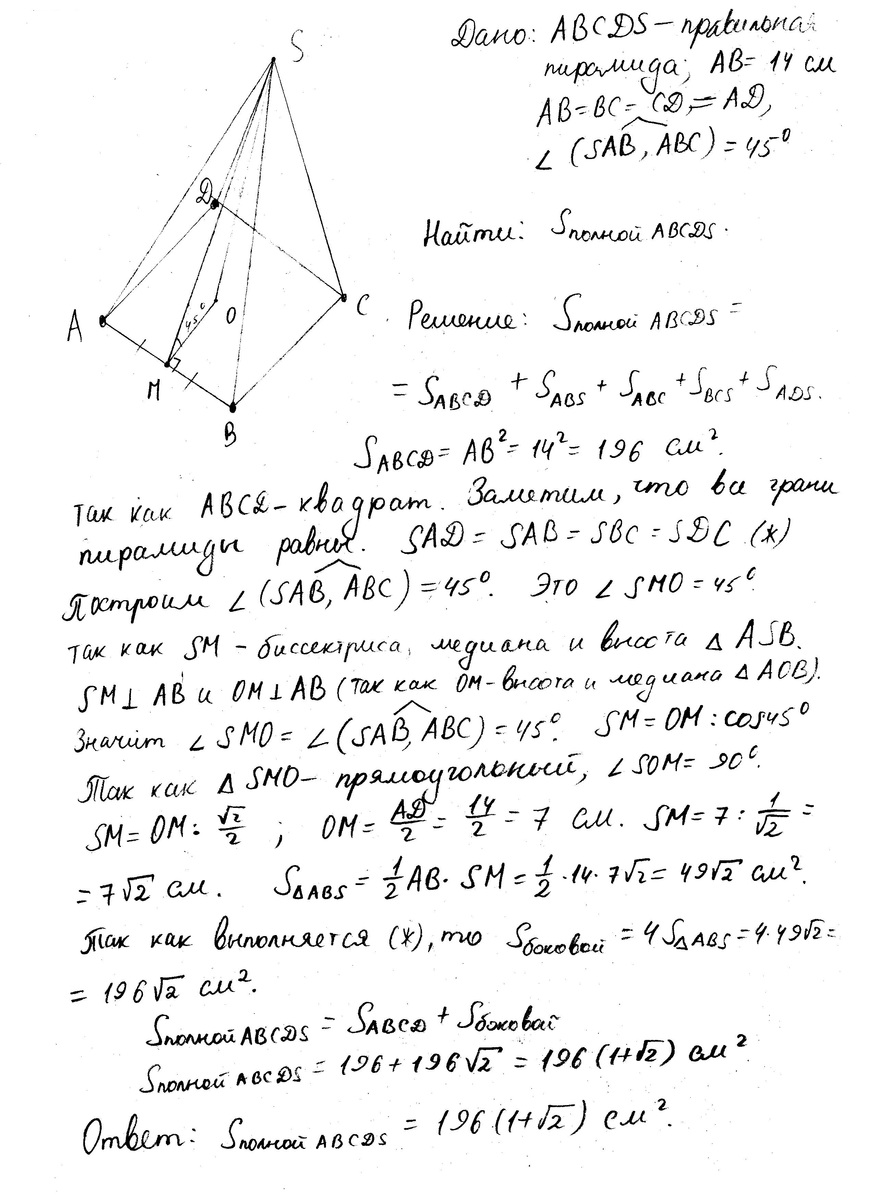 S
Дано: ABCDS – правильная
пирамида, AB = 14 см
AB = BC = CD = AD,
∠ (SAB, ABC) = 45°
D
Найти: Sполной ABCDS.
A
45°
O
C
M
B
Решение: Sполной ABCDS =
= S_ABCD + S_ABS + S_ABC + S_BCS + S_ADS.
S_ABCD = AB² = 14² = 196 см².
Так как ABCD – квадрат. Заметим, что все грани
пирамиды равны. SAD = SAB = SBC = SDC (*)
Построим ∠ (SAB, ABC) = 45°. Это ∠ SMO = 45°
так как SM – биссектриса, медиана и высота △ ASB.
SM ⊥ AB и OM ⊥ AB (так как OM – высота и медиана △ AOB).
Значит ∠ SMO = ∠ (SAB, ABC) = 45°. SM = OM : cos45°
Так как △ SMO – прямоугольный, ∠ SOM = 90°.
SM = OM : √2/2 ; OM = AD/2 = 14/2 = 7 см. SM = 7 : 1/√2 =
= 7√2 см. S△ABS = 1/2 AB · SM = 1/2 · 14 · 7√2 = 49√2 см².
Так как выполняется (*), то Sбоковой = 4S△ABS = 4·49√2 =
= 196√2 см².
Sполной ABCDS = S_ABCD + Sбоковой
Sполной ABCDS = 196 + 196√2 = 196 (1+√2) см²
Ответ: Sполной ABCDS = 196 (1+√2) см².